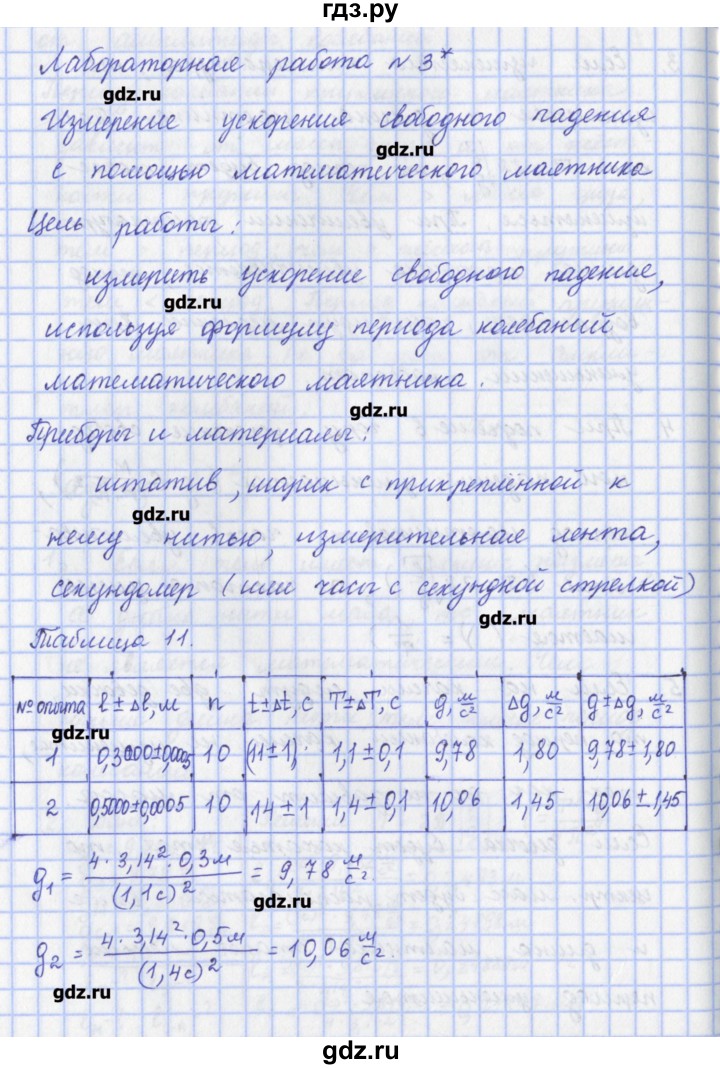 гдз.ру
Лабораторная работа № 3*
gdz.ru
Измерение ускорения свободного падения
gdz.ru
с помощью математического маятника
Цель работы:
измерить ускорение свободного падение,
gdz.ru
используя формулу периода колебаний
математического маятника.
gdz.ru
Приборы и материалы:
штатив, шарик с прикреплённой к
gdz.ru
нему нитью, измерительная лента,
секундомер (или часы с секундной стрелкой)
gdz.ru
Таблица 11.
№ опыта l ± Δl, м n t ± Δt, с T ± ΔT, с g, м/с² Δg, м/с² g ± Δg, м/с²
gdz.ru
1 0,3000±0,0005 10 (11±1) 1,1±0,1 9,78 1,80 9,78±1,80
2 0,5000±0,0005 10 14±1 1,4±0,1 10,06 1,45 10,06±1,45
g₁ = 4·3,14²·0,3м / (1,1с)² = 9,78 м/с²
gdz.ru
g₂ = 4·3,14²·0,5м / (1,4с)² = 10,06 м/с².
gdz.ru
gdz.ru